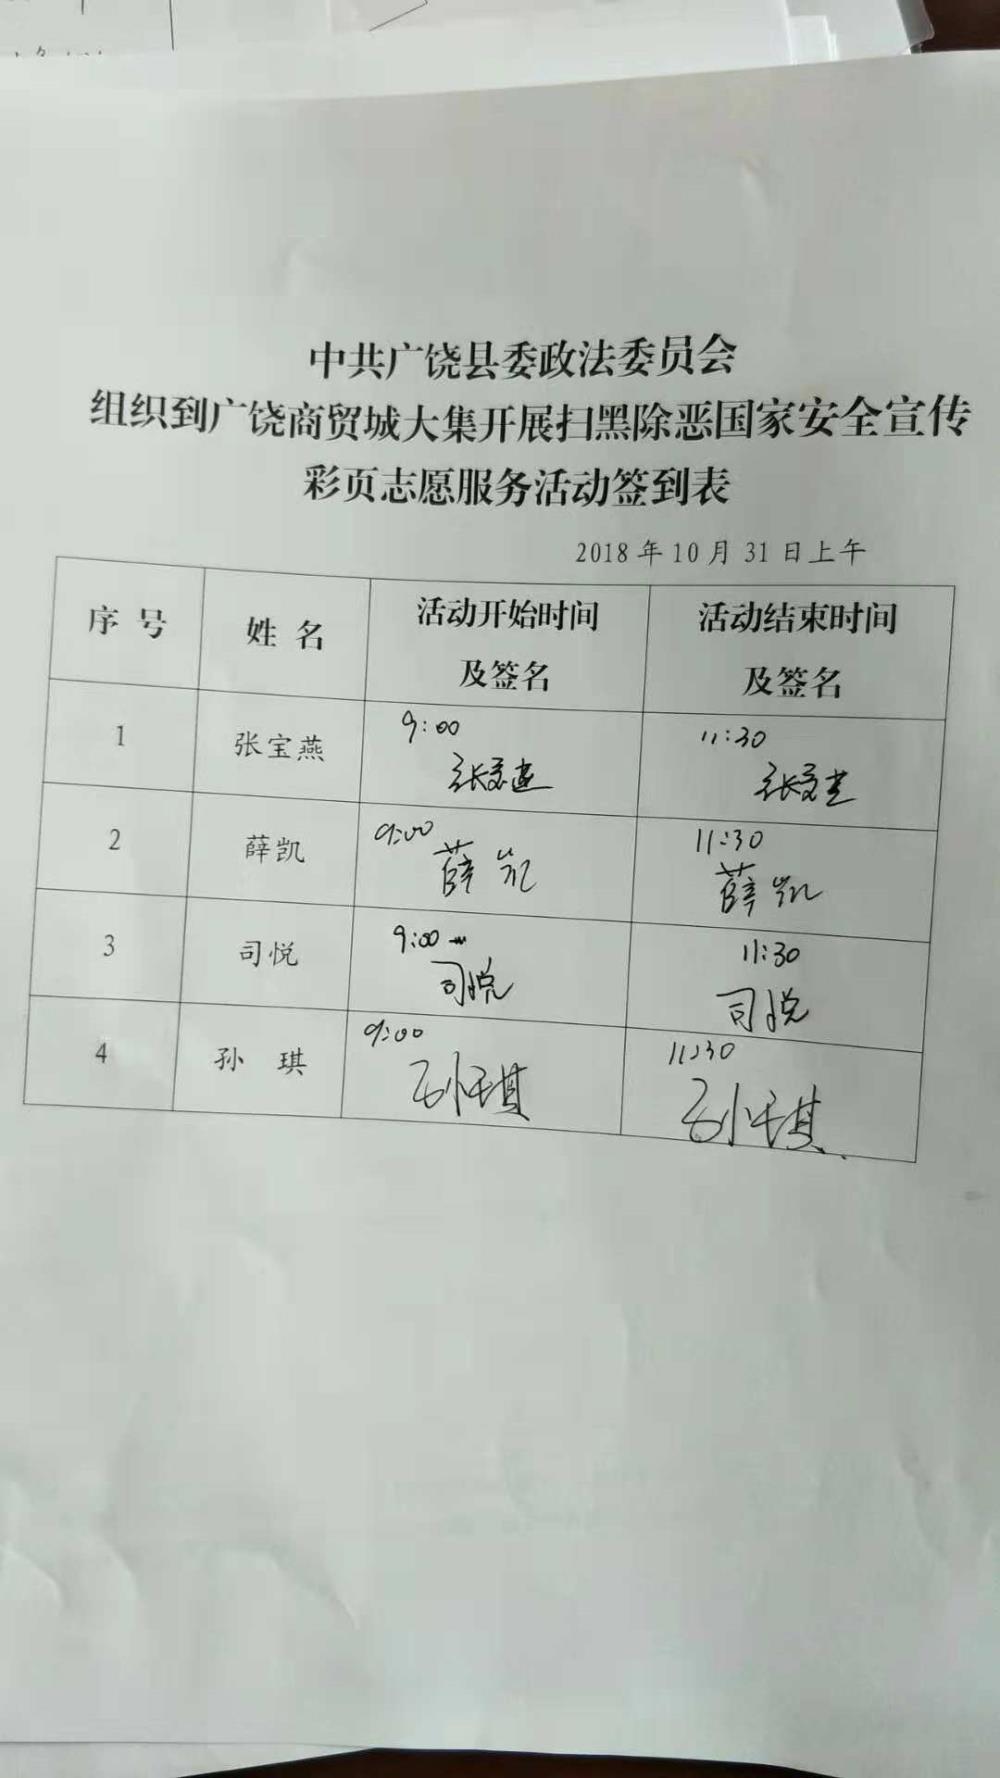 中共广饶县委政法委员会
组织到广饶商贸城大集开展扫黑除恶国家安全宣传
彩页志愿服务活动签到表
2018年10月31日上午
序号 姓名 活动开始时间及签名 活动结束时间及签名
1 张宝燕 9:00 张宝燕 11:30 张宝燕
2 薛凯 9:00 薛凯 11:30 薛凯
3 司悦 9:00 司悦 11:30 司悦
4 孙琪 9:00 孙琪 11:30 孙琪